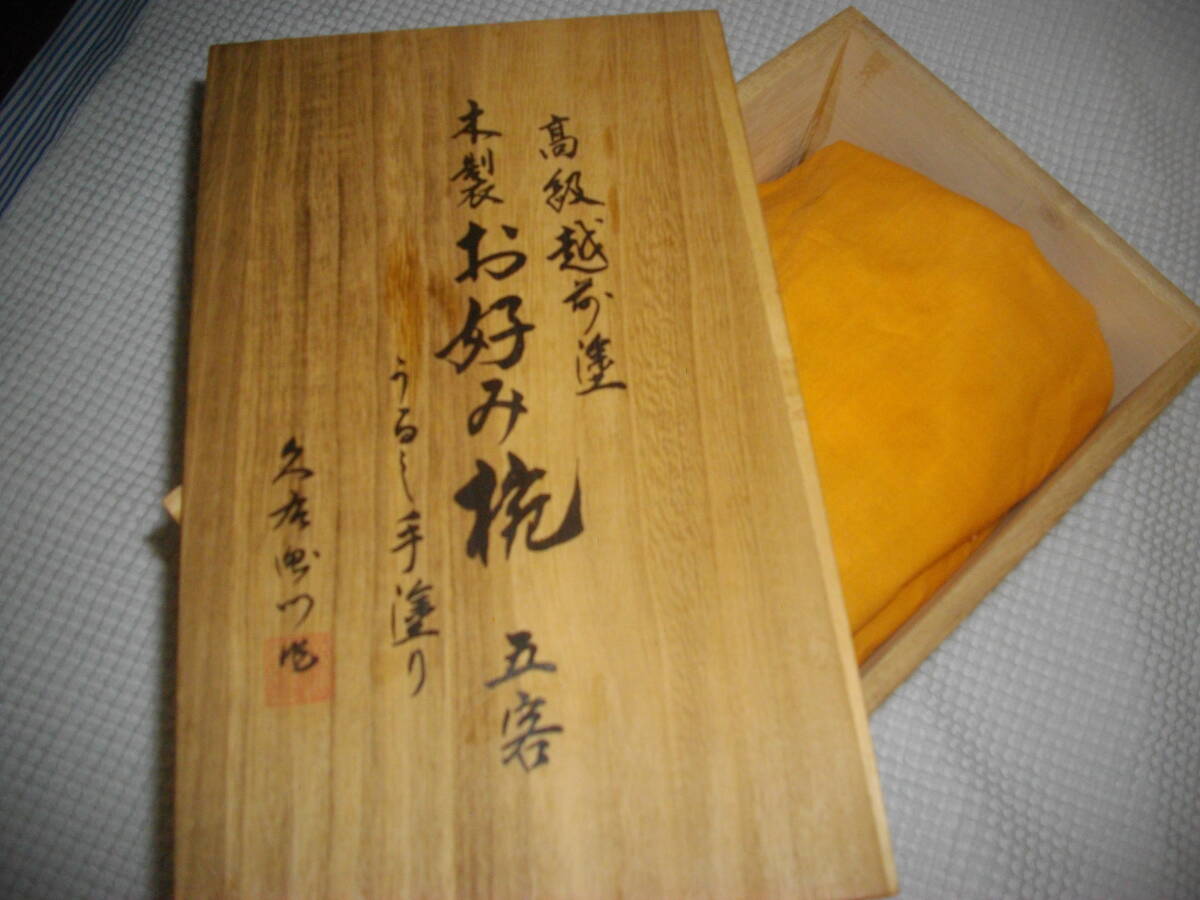 高級越前塗
木製お好み椀 五客
うるし手塗り
久右衛門作